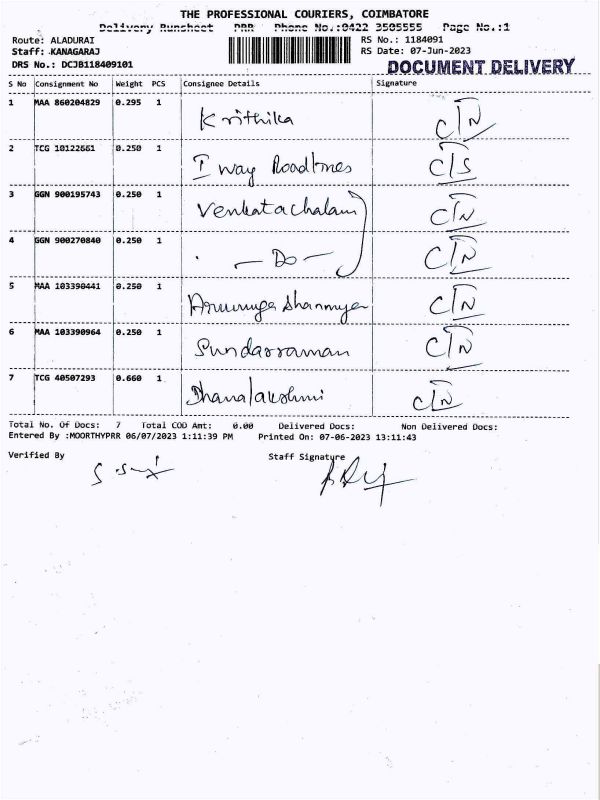 THE PROFESSIONAL COURIERS, COIMBATORE
Delivery Runsheet PRR Phone No.:0422 3505555 Page No.:1
Route: ALADURAI RS No.: 1184091
Staff: KANAGARAJ RS Date: 07-Jun-2023
DRS No.: DCJB118409101 DOCUMENT DELIVERY
S No Consignment No Weight PCS Consignee Details Signature
1 MAA 860204829 0.295 1 Krithika C/N
2 TCG 10122661 0.250 1 I way Roadlines C/S
3 GGN 900195743 0.250 1 Venkatachalam C/N
4 GGN 900270840 0.250 1 — Do — C/N
5 MAA 103390441 0.250 1 C/N
6 MAA 103390964 0.250 1 Sundarraman C/N
7 TCG 40507293 0.660 1 Dhanalakshmi C/N
Total No. Of Docs: 7 Total COD Amt: 0.00 Delivered Docs: Non Delivered Docs:
Entered By :MOORTHYPRR 06/07/2023 1:11:39 PM Printed On: 07-06-2023 13:11:43
Verified By Staff Signature